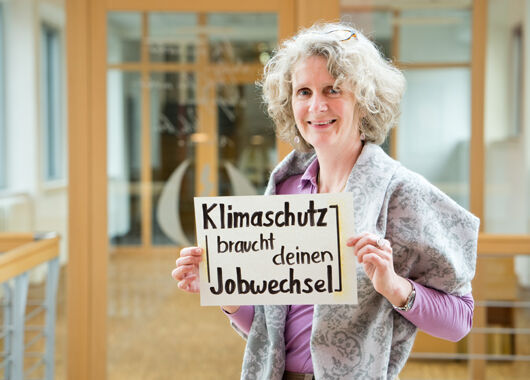 Klimaschutz
braucht
deinen
Jobwechsel